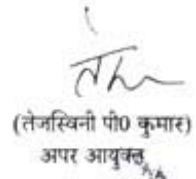 (तेजस्विनी पी0 कुमार)
अपर आयुक्त